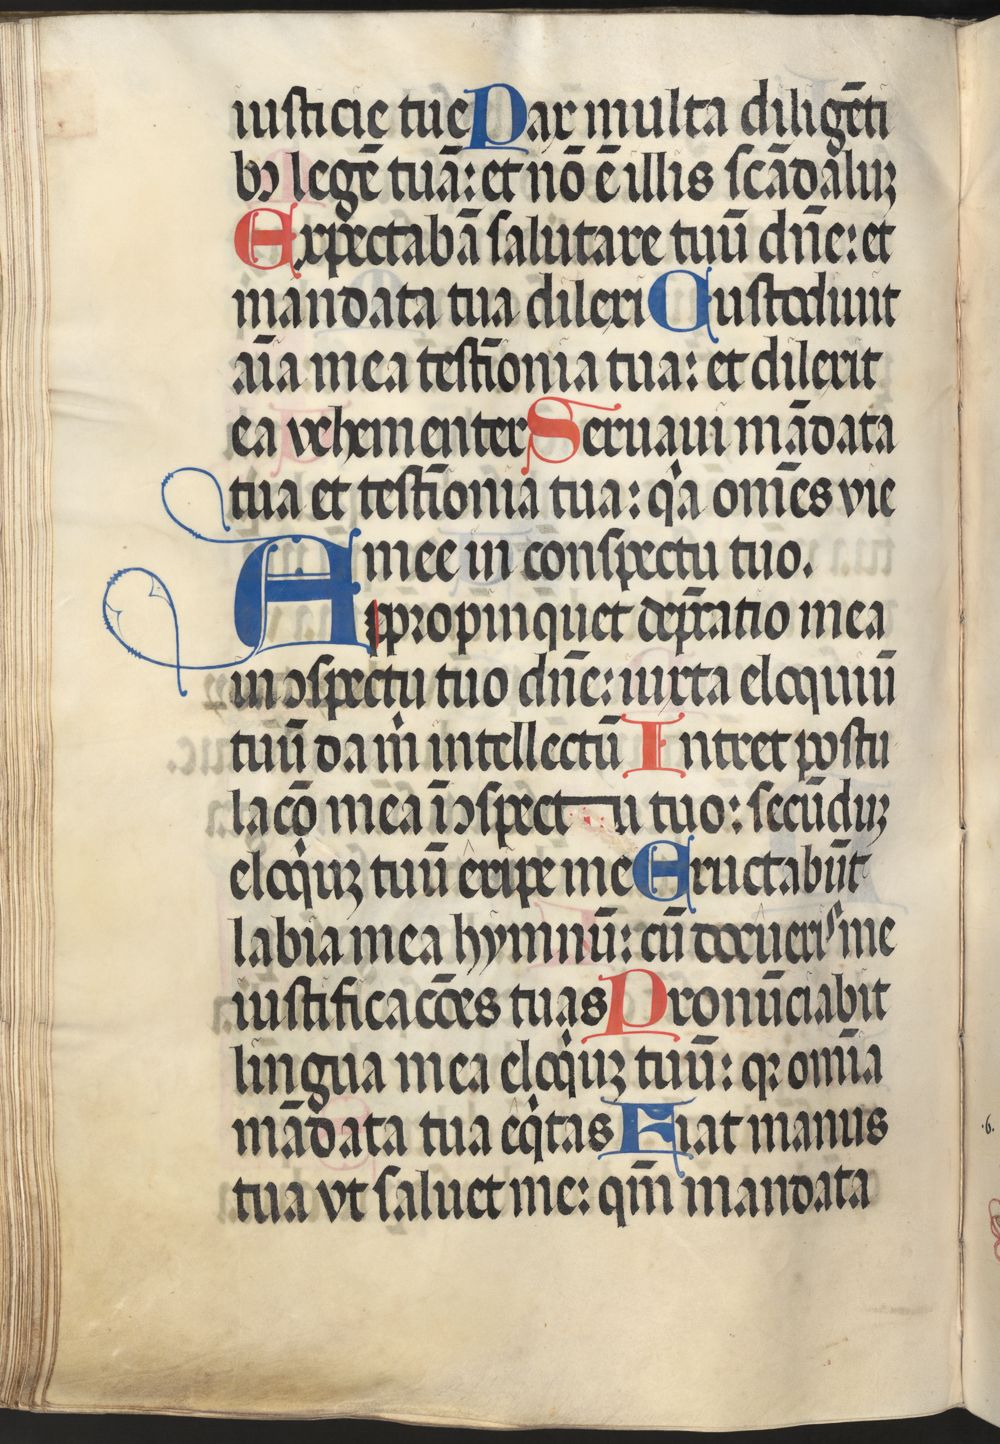 iusticie tue Pax multa diligēti
bꝫ legē tuā: et nō ē illis scādaluꝫ
Expectabā salutare tuū dn̄e: et
mandata tua dilexi Custodiuit
aīa mea testīonia tua: et dilexit
ea vehementer Seruaui mādata
tua et testīonia tua: qͥa om̄es vie
mee in conspectu tuo.
Appropinquet dep̄catio mea
in ↄspectu tuo dn̄e: iuxta eloquiū
tuū da mͥ intellectū Intret postu
lacō mea ī ↄspectu tuo: secūduꝫ
eloqͥuꝫ tuū eripe me Eructabūt
labia mea hymnū: cū docueris me
iustificacōes tuas Pronūciabit
lingua mea eloqͥuꝫ tuū: qꝛ om̄ia
mādata tua eqͥtas Fiat manus
tua vt saluet me: qm̄ mandata
.6.